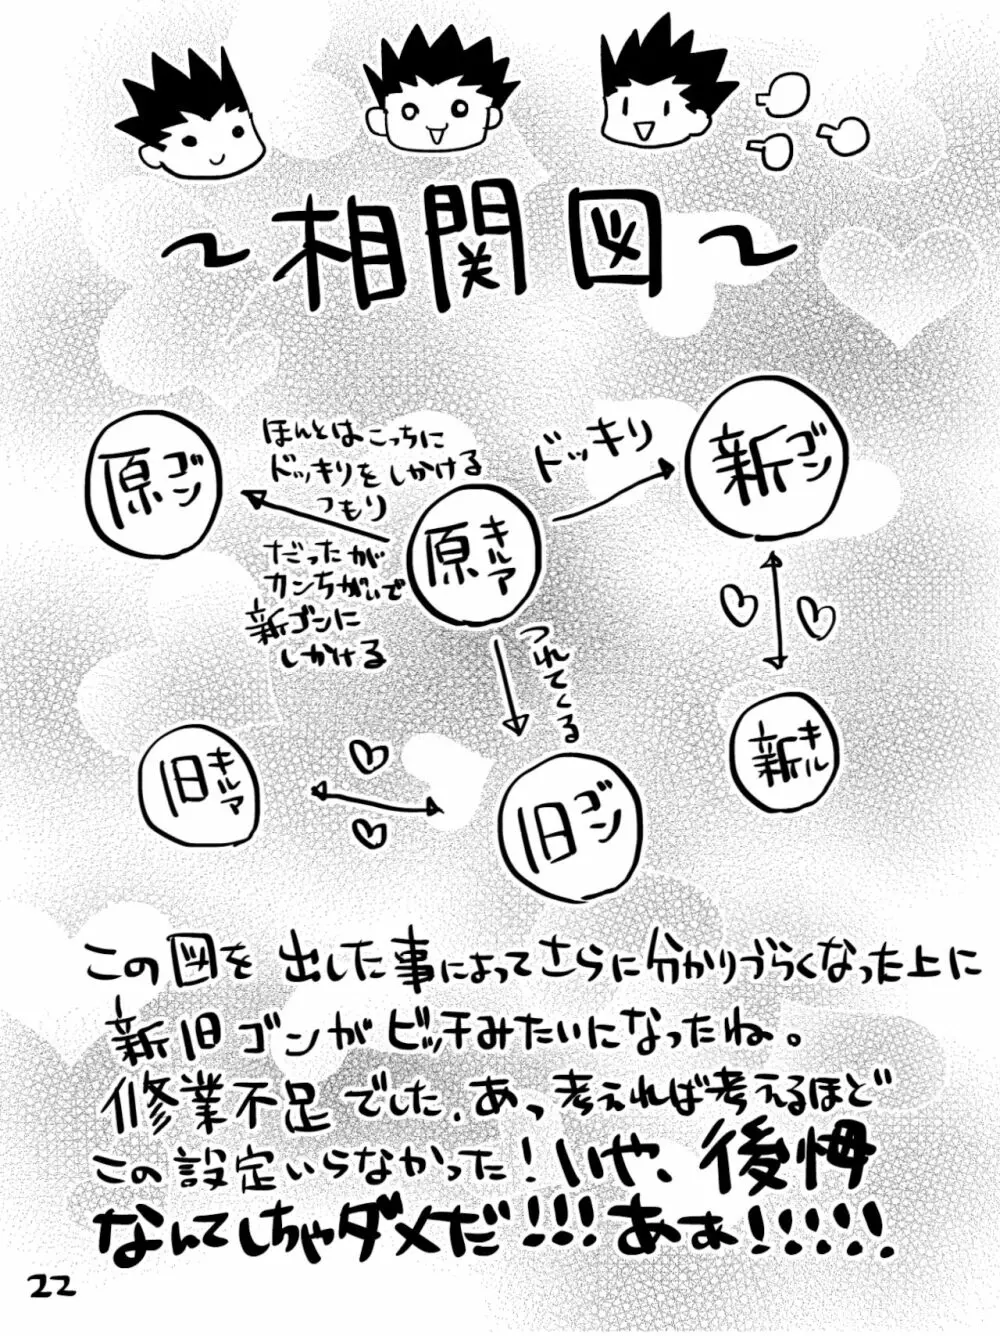 ～相関図～
ほんとはこっちに
ドッキリをしかける
つもり
だったが
カンちがいで
新ゴンに
しかける
ドッキリ
原ゴン
原キルア
新ゴン
つれてくる
旧キルア
旧ゴン
新キル
この図を出した事によってさらに分かりづらくなった上に
新旧ゴンがビッチみたいになったね。
修業不足でした.あっ考えれば考えるほど
この設定いらなかった!いや、後悔
なんてしちゃダメだ!!!あぁ!!!!!
22